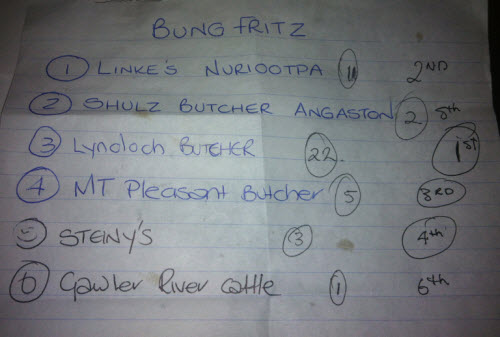 BUNG FRITZ
1 LINKE'S NURIOOTPA 11 2ND
2 SHULZ BUTCHER ANGASTON 2 5th
3 Lynoloch BUTCHER 22. 1st
4 MT Pleasant Butcher 5 3RD
5 STEINY'S 3 4th
6 Gawler River Cattle 1 6th